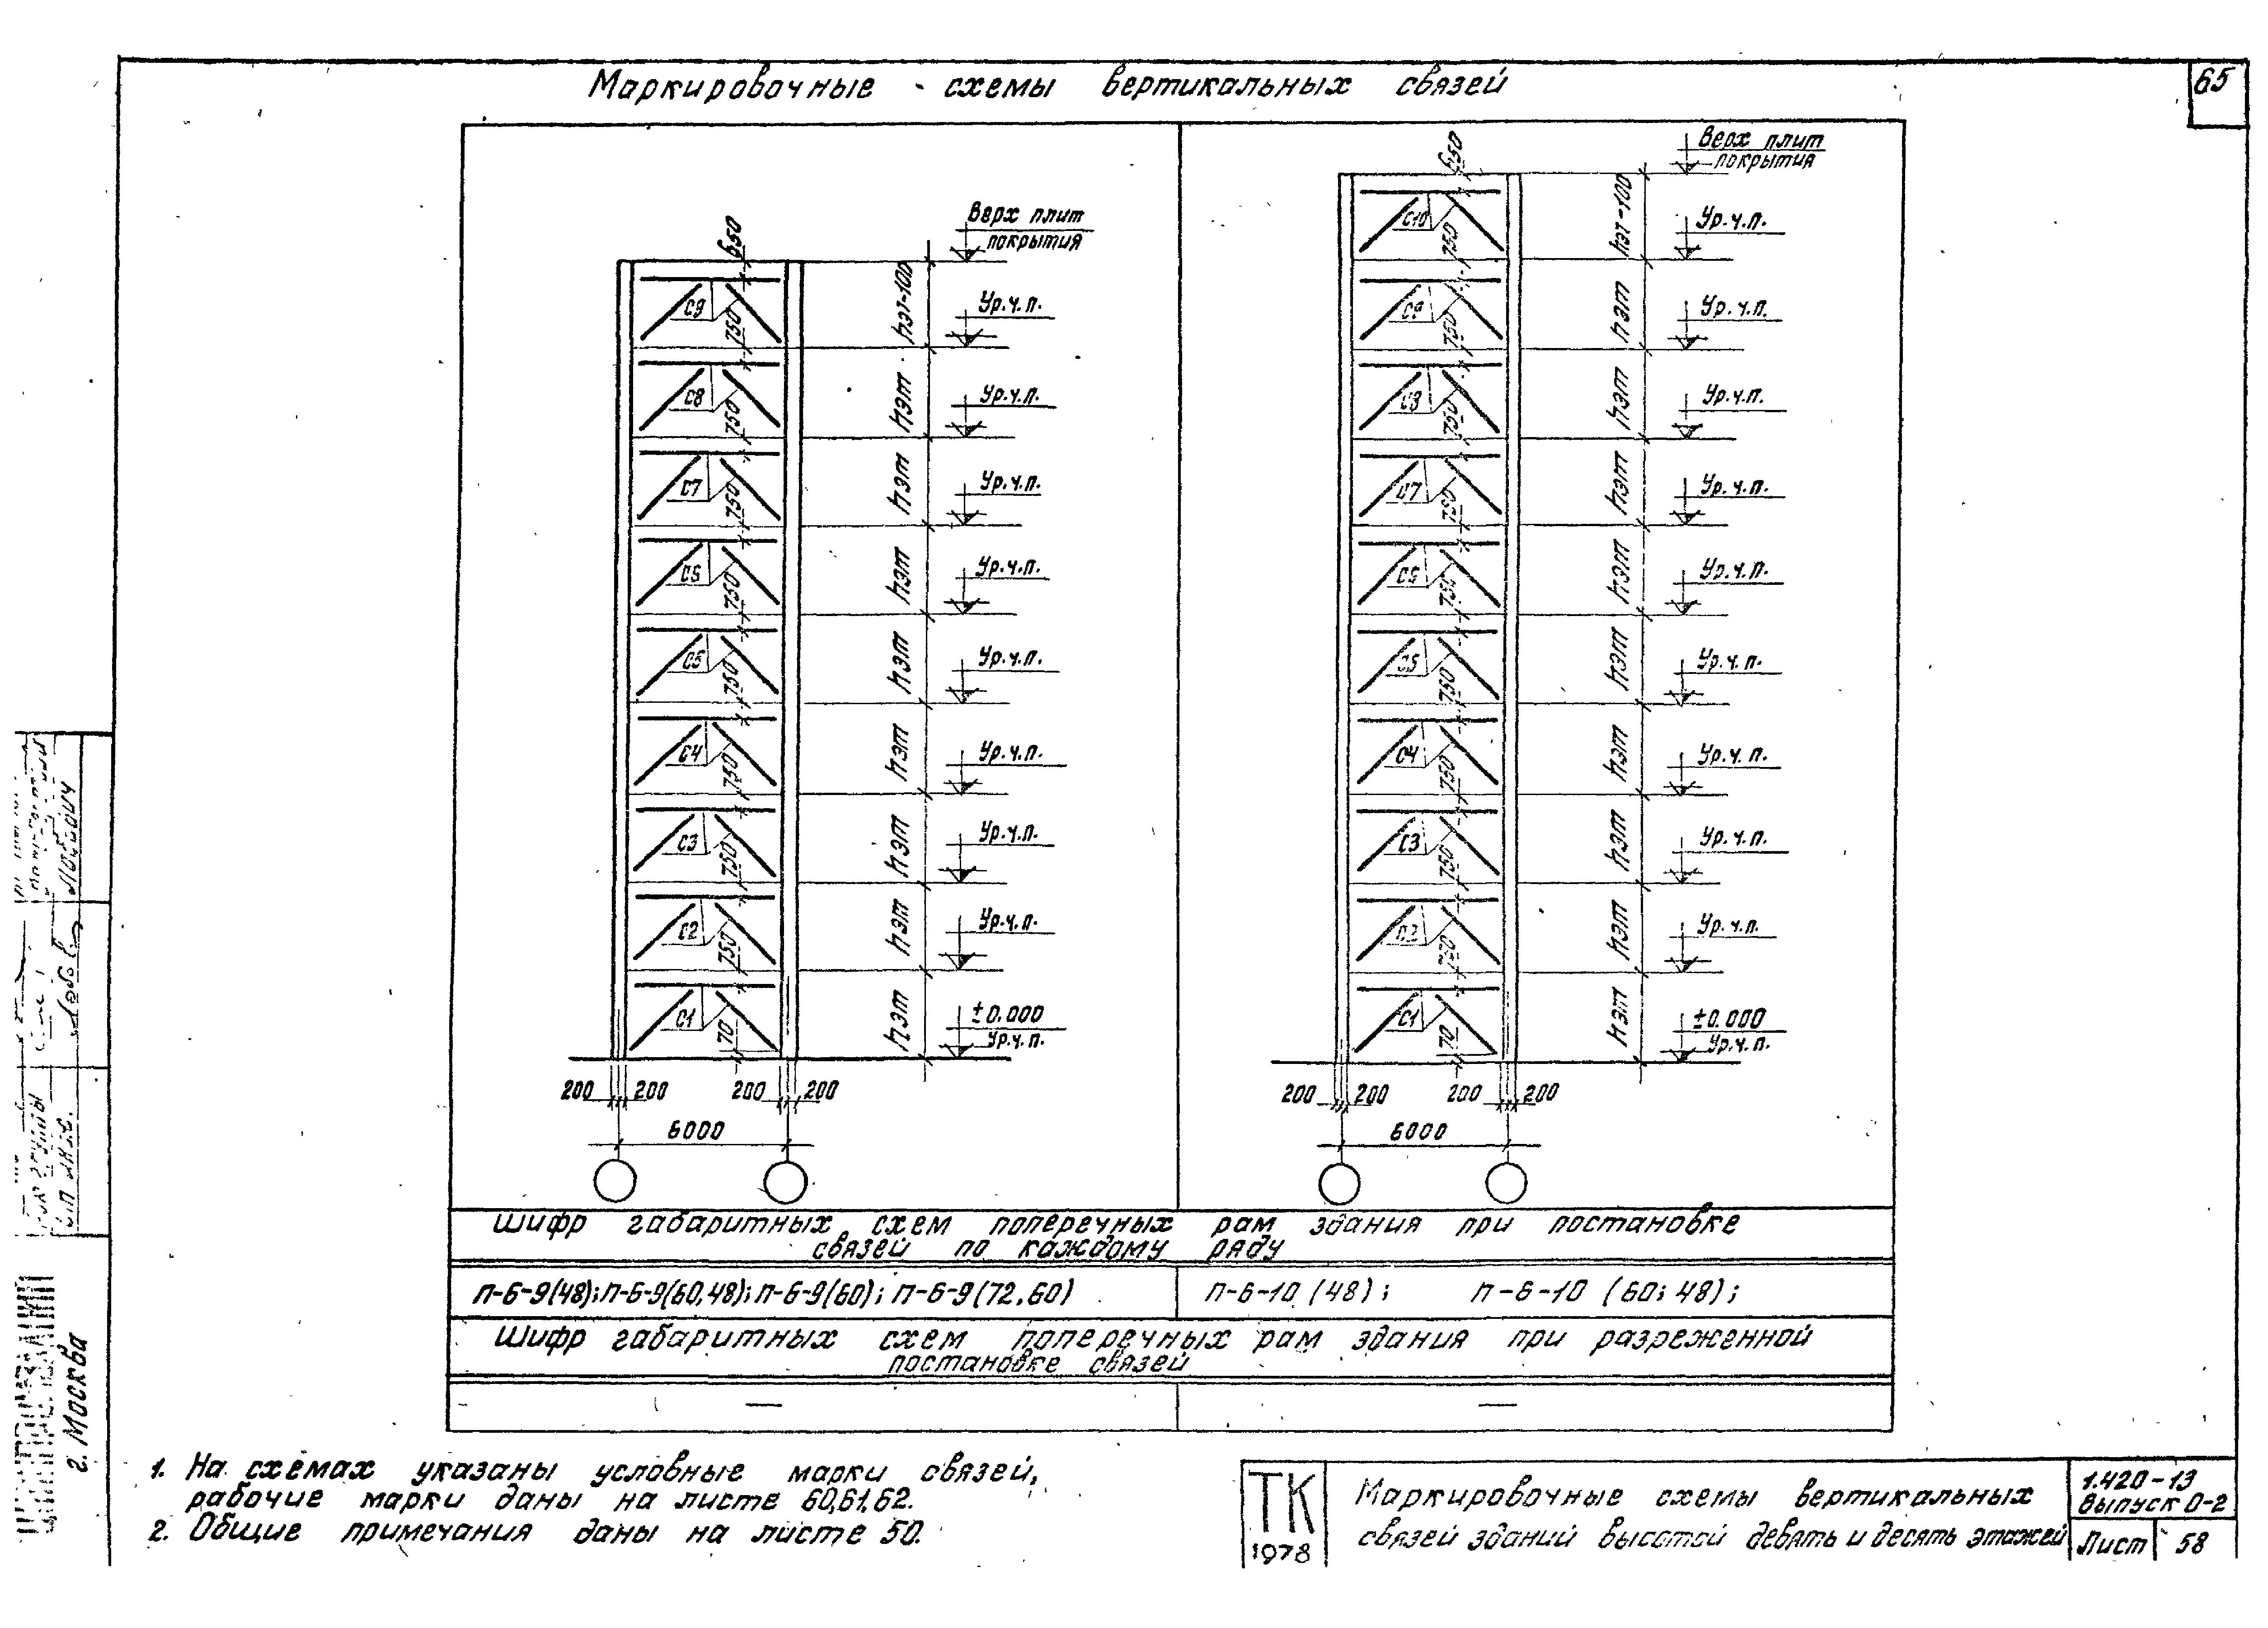 65
Маркировочные схемы вертикальных связей
Верх плит
покрытия
650
С9
750
hэт-100
Ур.ч.п.
С8
750
hэт
Ур.ч.п.
С7
750
hэт
Ур.ч.п.
С6
750
hэт
Ур.ч.п.
С5
750
hэт
Ур.ч.п.
С4
750
hэт
Ур.ч.п.
С3
750
hэт
Ур.ч.п.
С2
750
hэт
Ур.ч.п.
С1
70
hэт
±0.000
Ур.ч.п.
200 200 200 200
6000
Верх плит
покрытия
650
С10
750
hэт-100
Ур.ч.п.
С9
750
hэт
Ур.ч.п.
С8
750
hэт
Ур.ч.п.
С7
750
hэт
Ур.ч.п.
С6
750
hэт
Ур.ч.п.
С5
750
hэт
Ур.ч.п.
С4
750
hэт
Ур.ч.п.
С3
750
hэт
Ур.ч.п.
С2
750
hэт
Ур.ч.п.
С1
70
hэт
±0.000
Ур.ч.п.
200 200 200 200
6000
Шифр габаритных схем поперечных рам здания при постановке
связей по каждому ряду
П-6-9(48); П-6-9(60,48); П-6-9(60); П-6-9(72,60)
П-6-10 (48); П-6-10 (60; 48);
Шифр габаритных схем поперечных рам здания при разреженной
постановке связей
— —
1. На схемах указаны условные марки связей,
рабочие марки даны на листе 60,61,62.
2. Общие примечания даны на листе 50.
ТК
1978
Маркировочные схемы вертикальных
связей зданий высотой девять и десять этажей
1.420-13
Выпуск 0-2
Лист 58
г. Москва